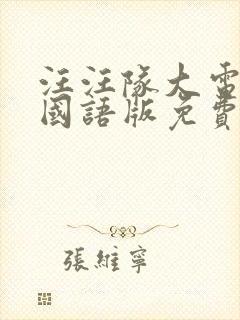 汪汪隊大電
國語版免費
張維寧